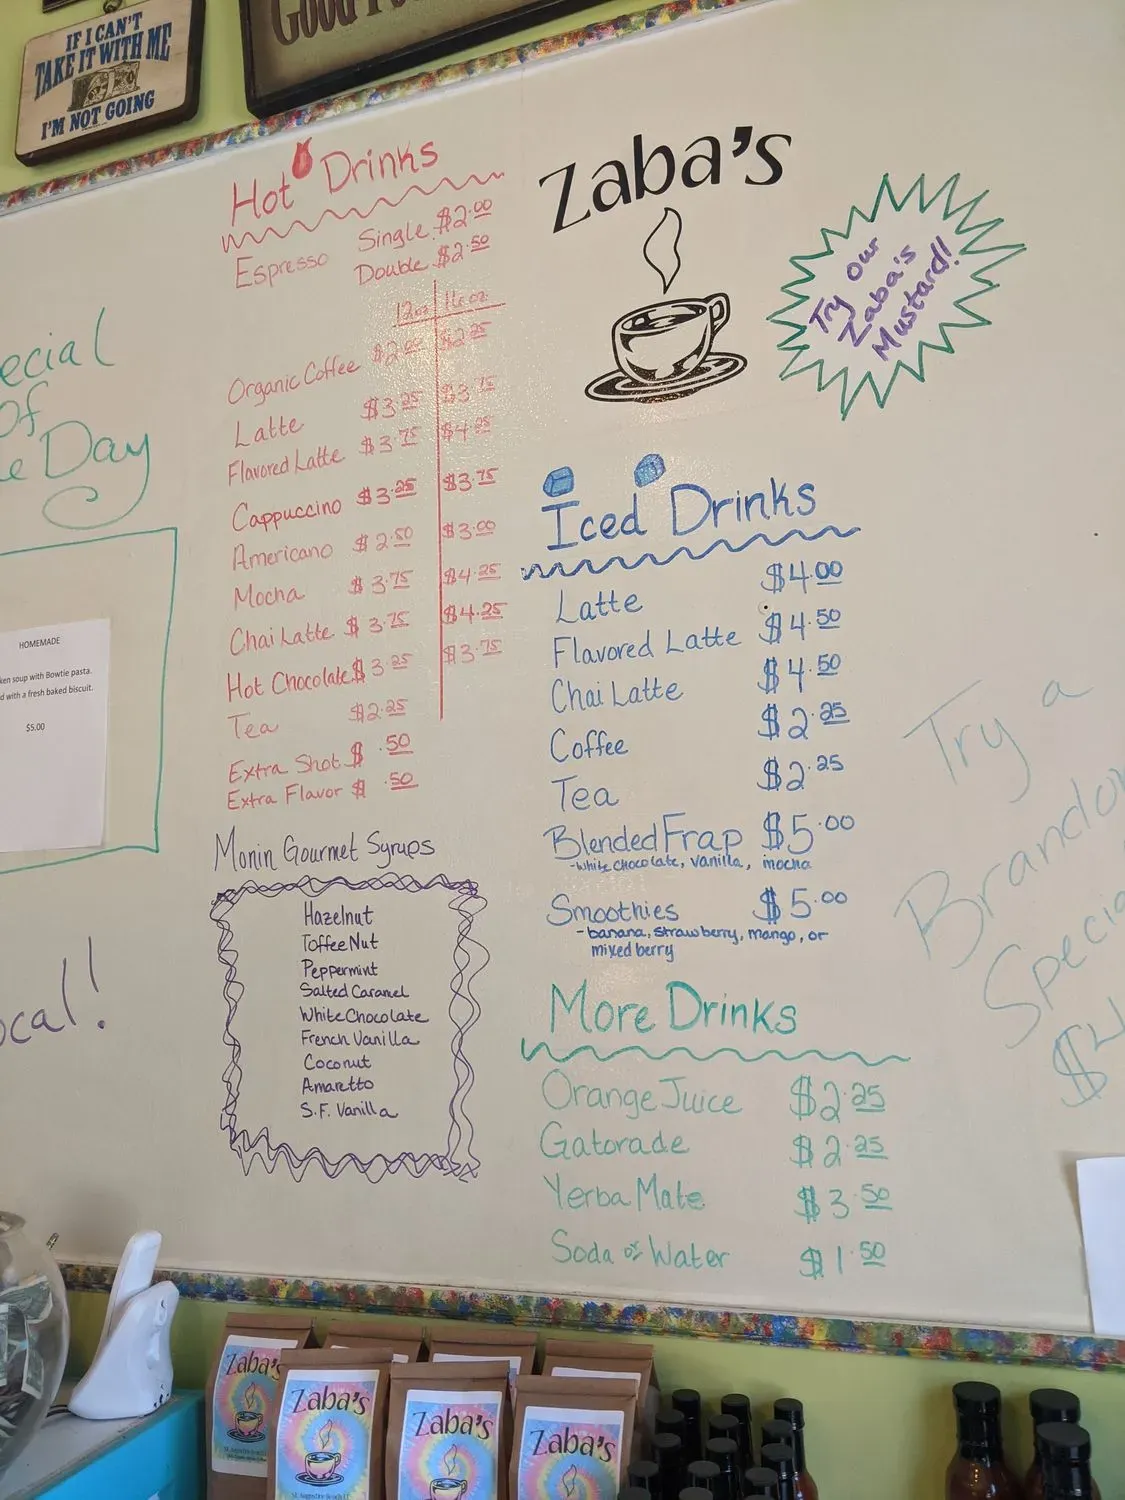 IF I CAN'T
TAKE IT WITH ME
I'M NOT GOING
GOOD
ecial
Of
e Day
HOMEMADE
ken soup with Bowtie pasta.
d with a fresh baked biscuit.
$5.00
ocal!
Hot Drinks
Espresso Single $2.00
Double $2.50
12oz 16oz
Organic Coffee $2.00 $2.25
Latte $3.25 $3.75
Flavored Latte $3.75 $4.25
Cappuccino $3.25 $3.75
Americano $2.50 $3.00
Mocha $3.75 $4.25
Chai Latte $3.75 $4.25
Hot Chocolate $3.25 $3.75
Tea $2.25
Extra Shot $.50
Extra Flavor $.50
Monin Gourmet Syrups
Hazelnut
Toffee Nut
Peppermint
Salted Caramel
White Chocolate
French Vanilla
Coconut
Amaretto
S.F. Vanilla
Zaba's
Try Our
Zaba's
Mustard!
Iced Drinks
Latte $4.00
Flavored Latte $4.50
Chai Latte $4.50
Coffee $2.25
Tea $2.25
Blended Frap $5.00
-white chocolate, vanilla, mocha
Smoothies $5.00
-banana, strawberry, mango, or
mixed berry
More Drinks
Orange Juice $2.25
Gatorade $2.25
Yerba Mate $3.50
Soda or Water $1.50
Try a
Brando
Specia
$4
Zaba's
Zaba's
Zaba's
Zaba's